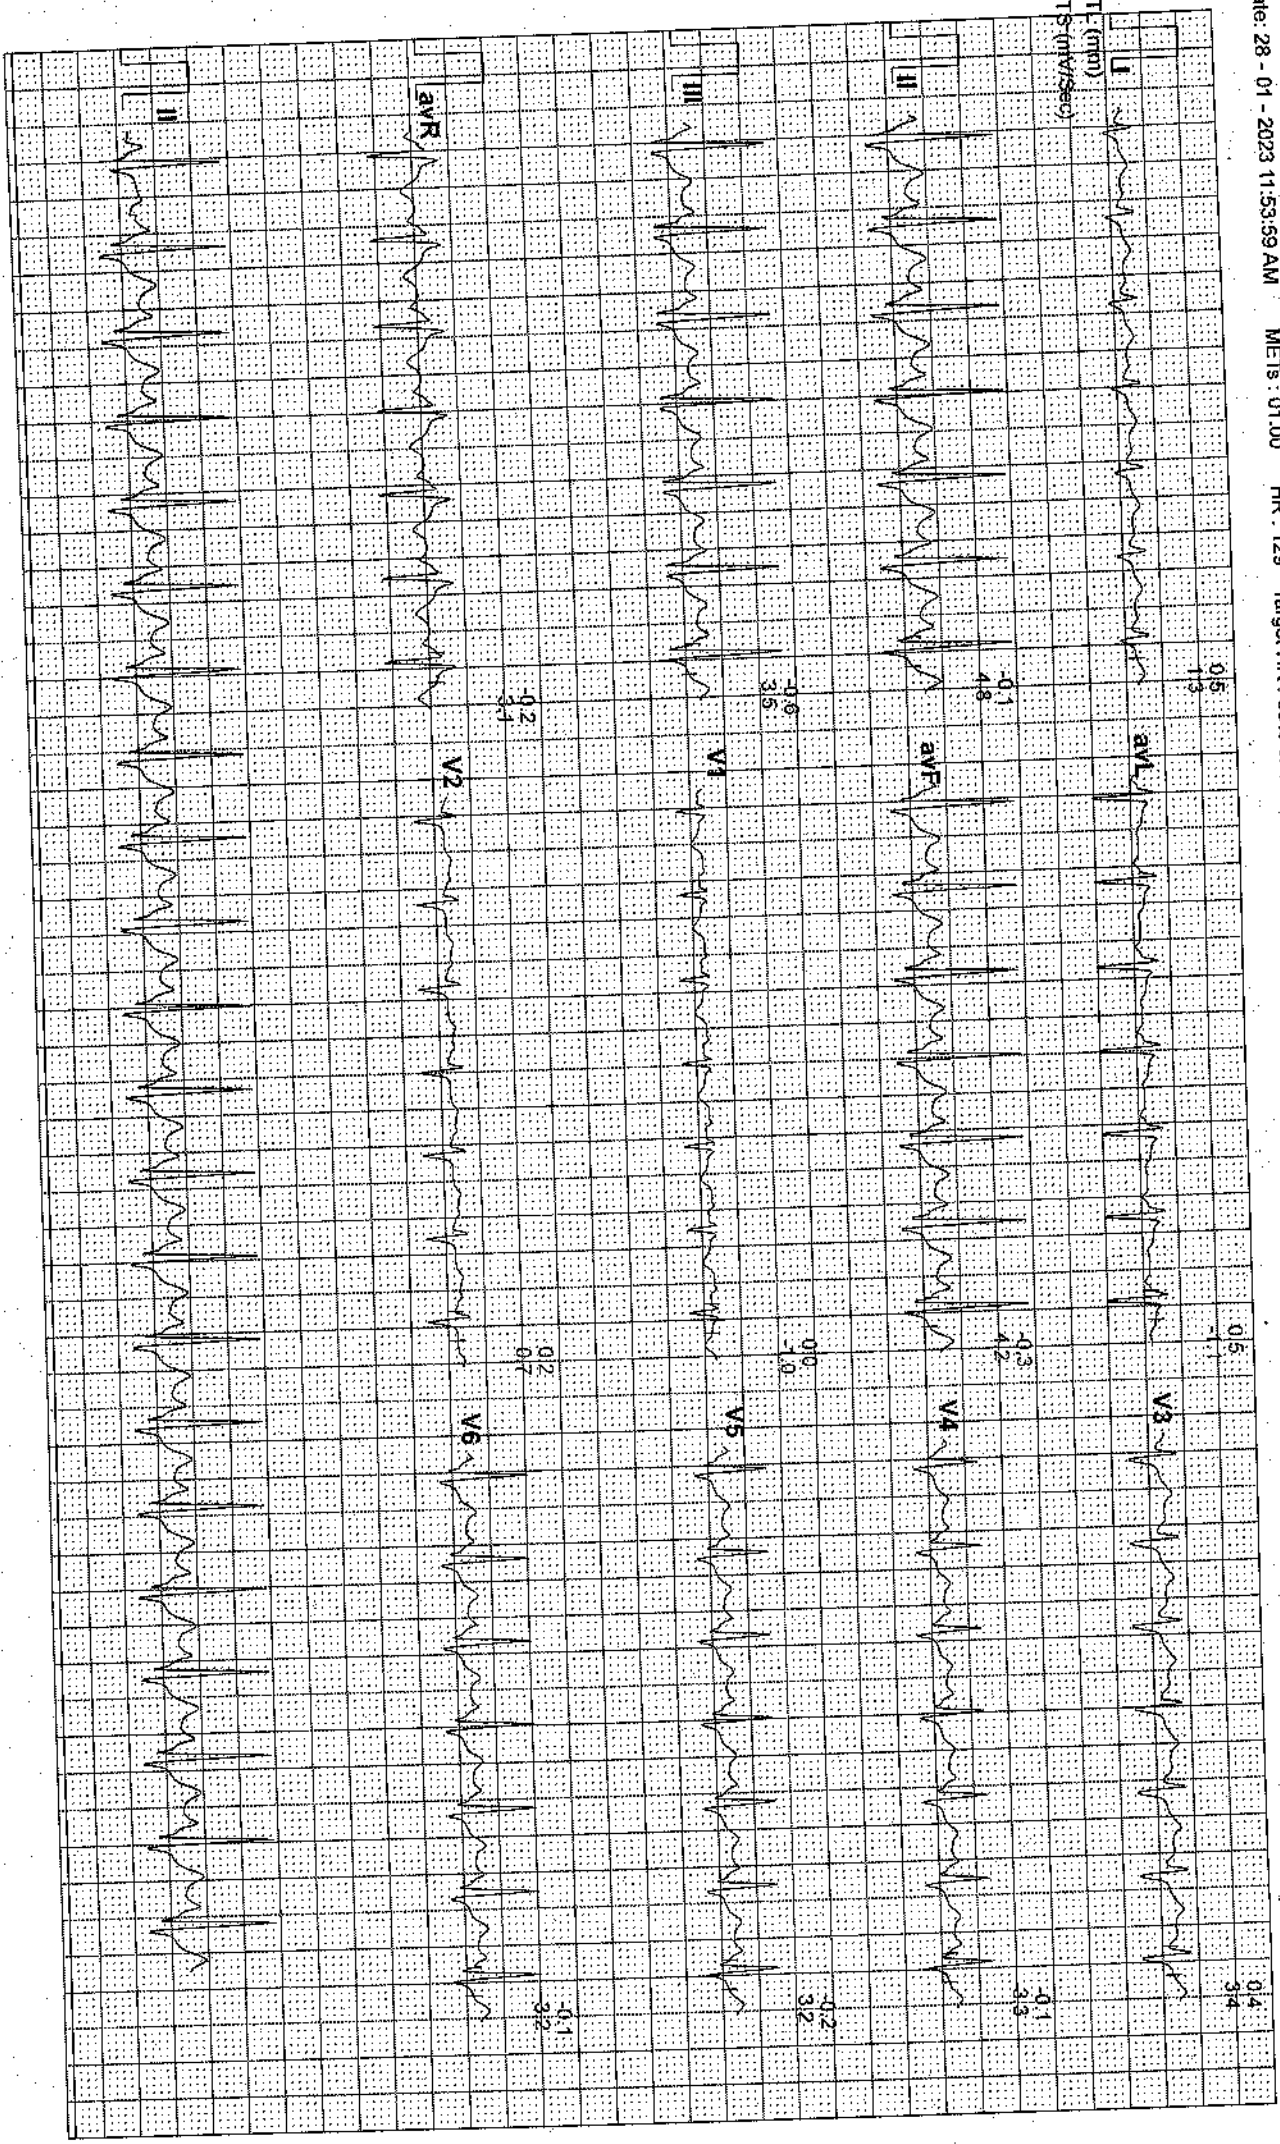 ate: 28 - 01 - 2023 11:53:59 AM METs : 01.00 HR : 125
TL (mm)
TS (mV/Sec)
I
0.5
1.3
avL
0.5
-1.1
V3
0.4
3.4
II
-0.1
4.8
avF
-0.3
4.2
V4
-0.1
3.3
III
-0.6
3.5
V1
0.0
-1.0
V5
-0.2
3.2
avR
-0.2
V2
0.2
0.7
V6
-0.1
3.2
II